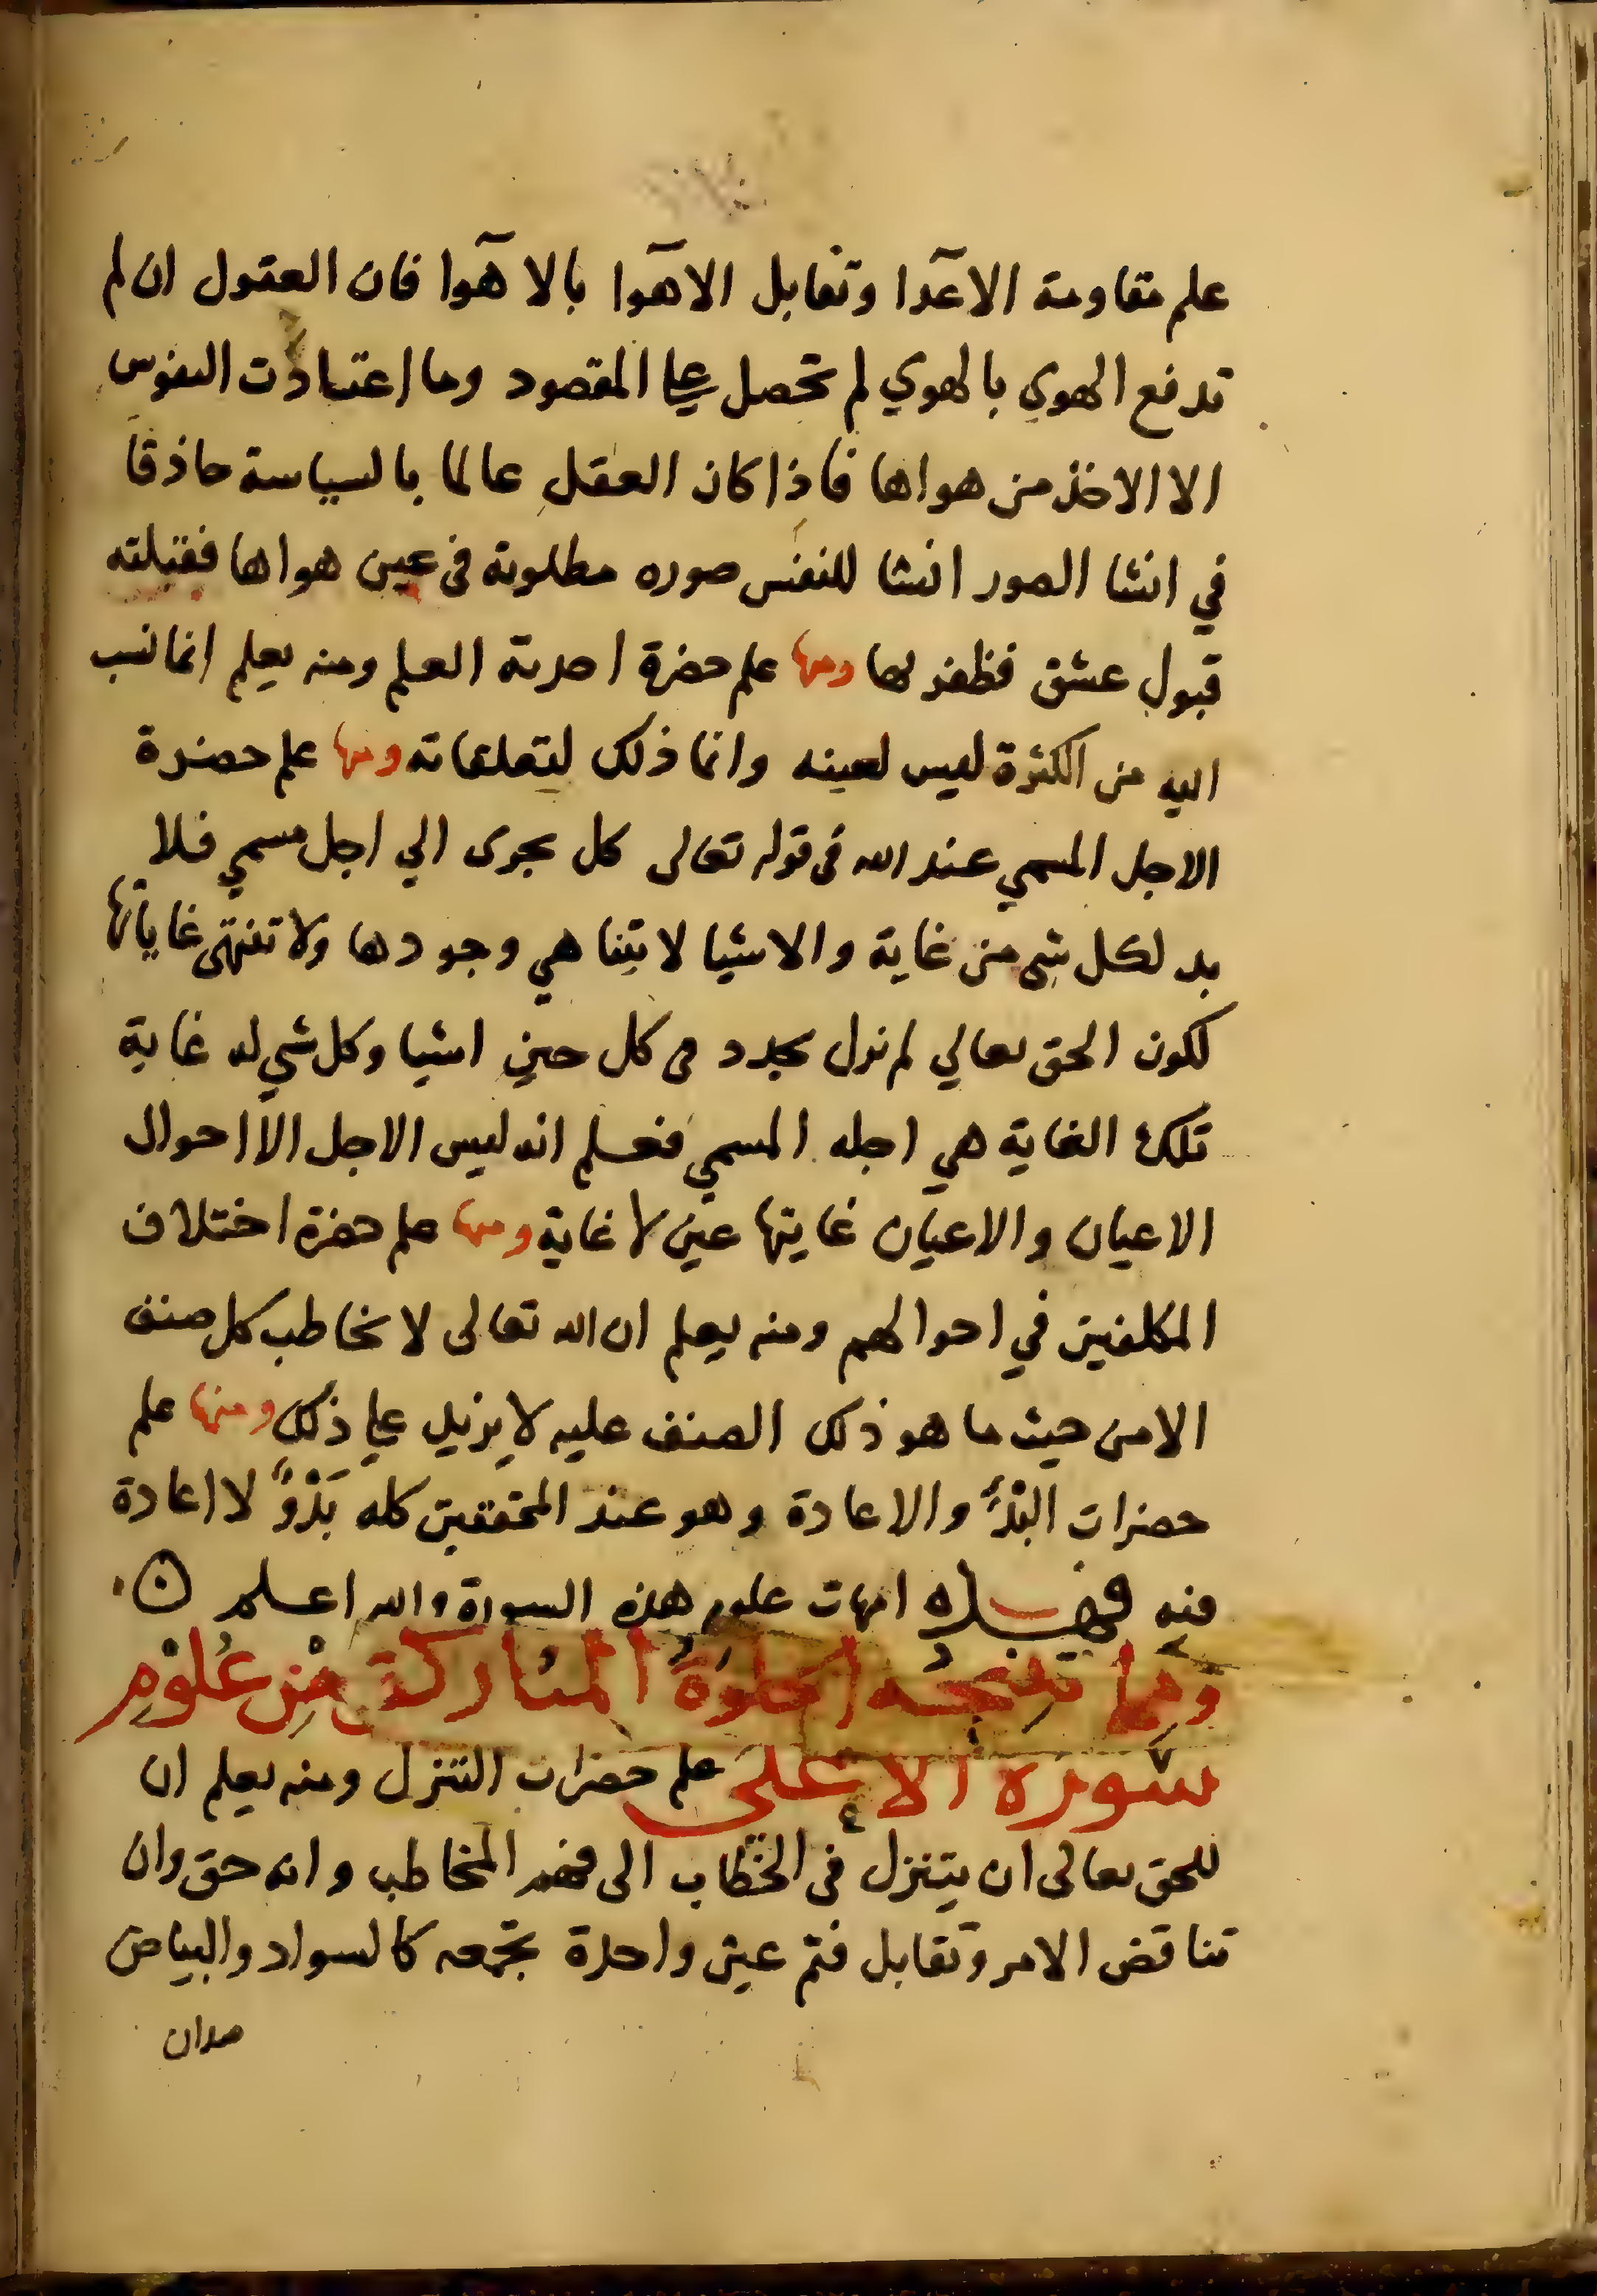 علم مقاومة الاعدا وتقابل الاهوا بالاهوا فان العقول ان لم
تدفع الهوي بالهوي لم تحصل علي المقصود وما اعتادت النفوس
الا الاخذ من هواها فاذا كان العقل عالما بالسياسة حاذقا
في انشا الصور انشا للنفس صوره مطلوبة في عين هواها فقبلته
قبول عشق فظفر بها ومنها علم حضرة احدية العلم ومنه يعلم انما نسب
اليه من الكثرة ليس لعينه وانما ذلك لتعلقاته ومنها علم حضرة
الاجل المسمي عند الله في قوله تعالى كل يجرى الي اجل مسمي فلا
بد لكل شي من غاية والاشيا لا يتناهي وجودها ولا تنتهى غاياتها
لكون الحق تعالي لم يزل يجدد في كل حين اشيا وكل شي له غاية
تلك الغاية هي اجله المسمي فعلم انه ليس الاجل الا احوال
الاعيان والاعيان غايتها عين لا غاية ومنها علم حضرة اختلاف
المكلفين في احوالهم ومنه يعلم ان الله تعالى لا يخاطب كل صنف
الا من حيث ما هو ذلك الصنف عليه لا يزيد علي ذلك ومنها علم
حضرات البدؤ والاعادة وهو عند المحققين كله بَدْوٌ لا اعادة
فيه فهذه امهات علوم هذه السورة والله اعلم
ومما تنتجه الخلوة المباركة من علوم
سورة الاعلى علم حضرات التنزل ومنه يعلم ان
للحق تعالى ان يتنزل في الخطاب الى فهم المخاطب وانه حق وان
تناقض الامر وتقابل فثم عين واحدة تجمعه كالسواد والبياض
ضدان